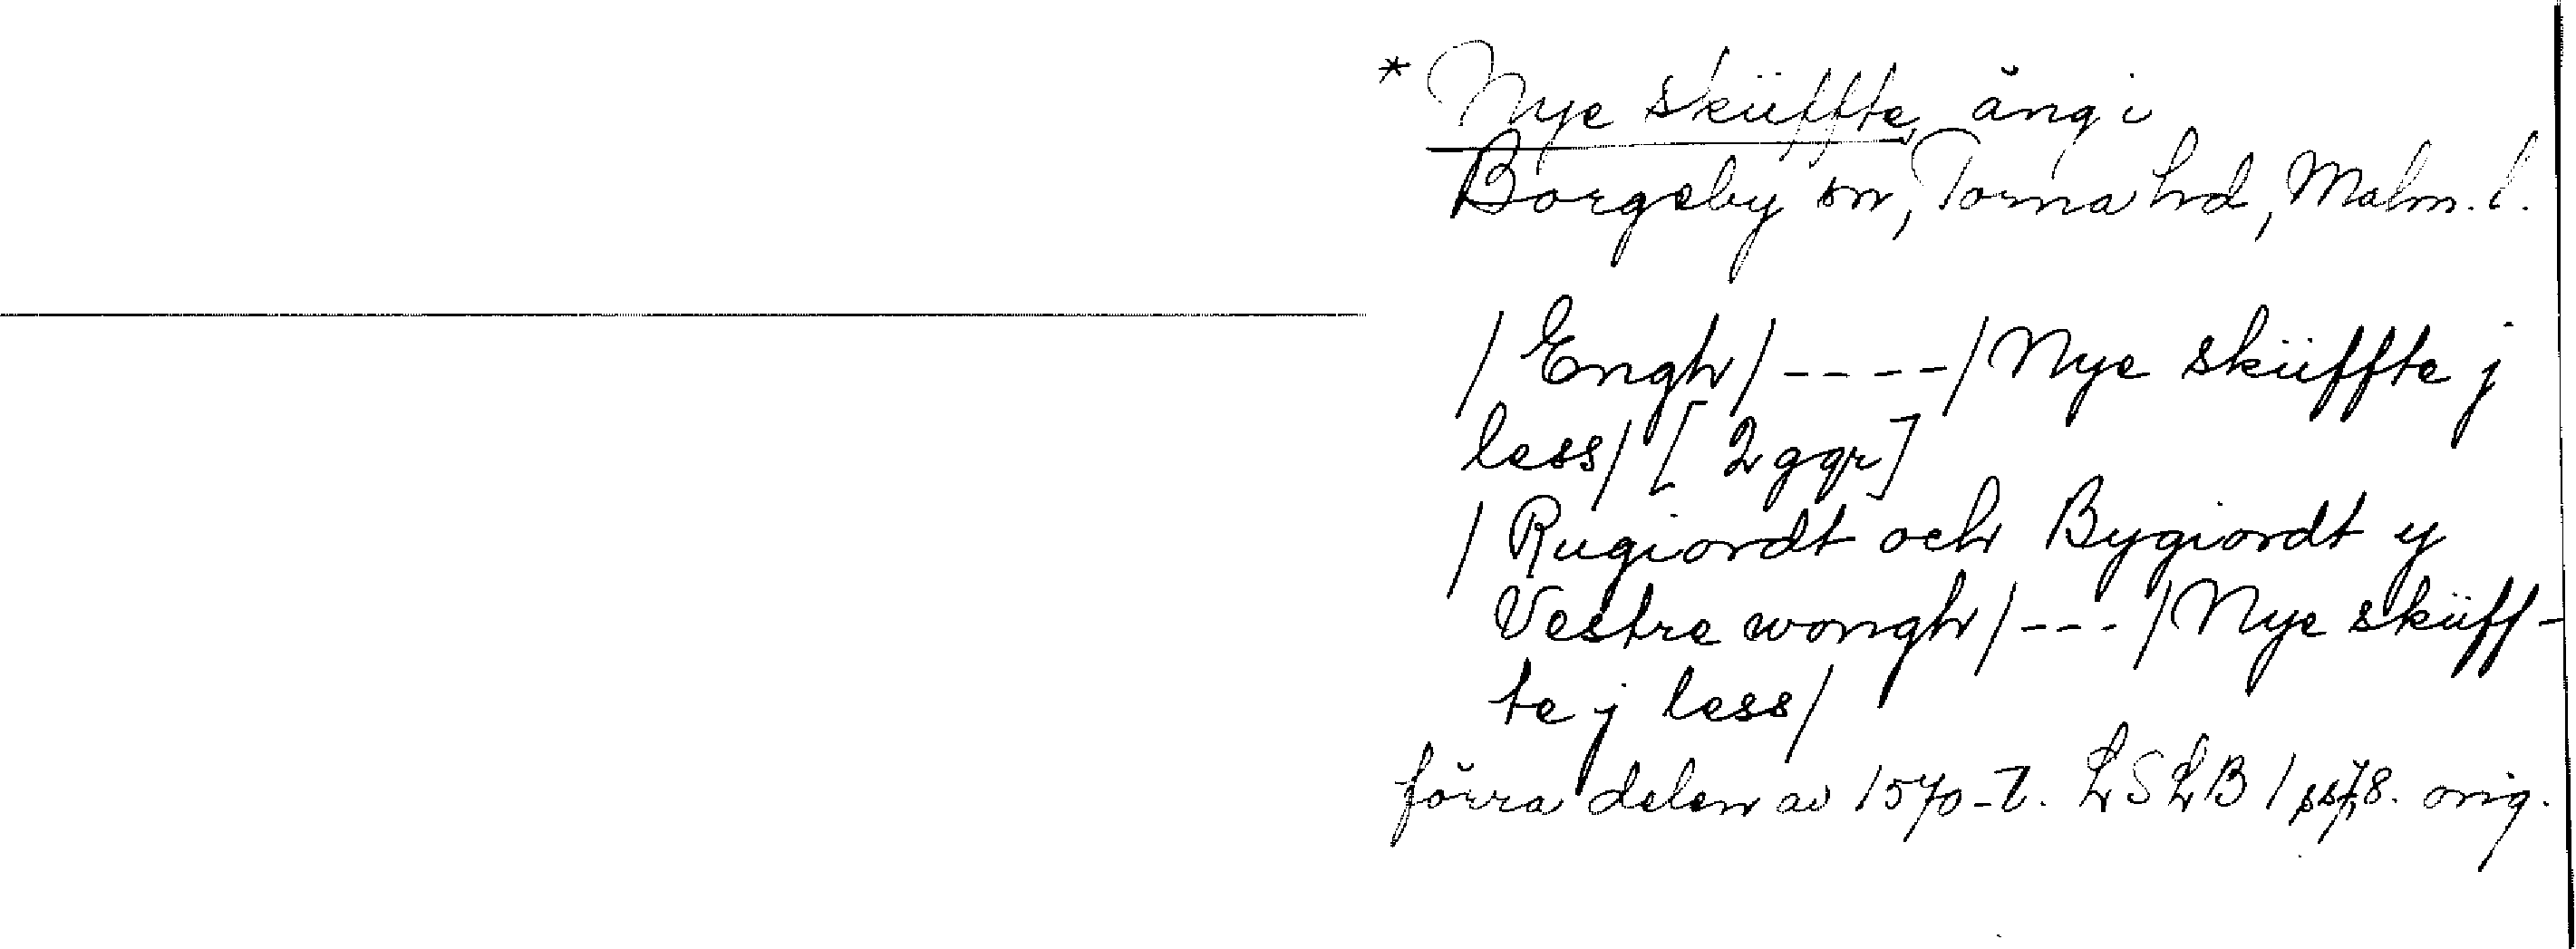 * Nye sküffte, äng i
Borgeby sn, Torna hd, Malm. l.
/ Engh / - - - - / Nye sküffte j
less / [ 2 ggr ]
/ Rugiordt och Bygiordt y
Vestre wongh / - - - / Nye sküff-
te j less /
förra delen av 1570-t. LSLB 1 orig.